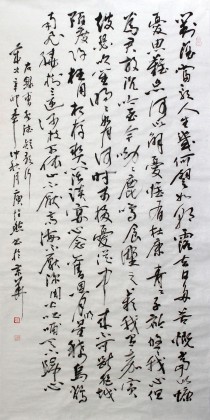 對酒當歌人生幾何譬如朝露去日苦多慨當以慷
憂思難忘何以解憂惟有杜康青青子衿悠悠我心但
為君故沉吟至今呦呦鹿鳴食野之苹我有嘉賓
鼓瑟吹笙明明如月何時可掇憂從中來不可斷絕越
陌度阡枉用相存契闊談讌心念舊恩月明星稀烏鵲
南飛繞樹三匝何枝可依山不厭高海不厭深周公吐哺天下歸心
右錄曹孟德短歌行
歲次辛卯年仲秋月書於京華